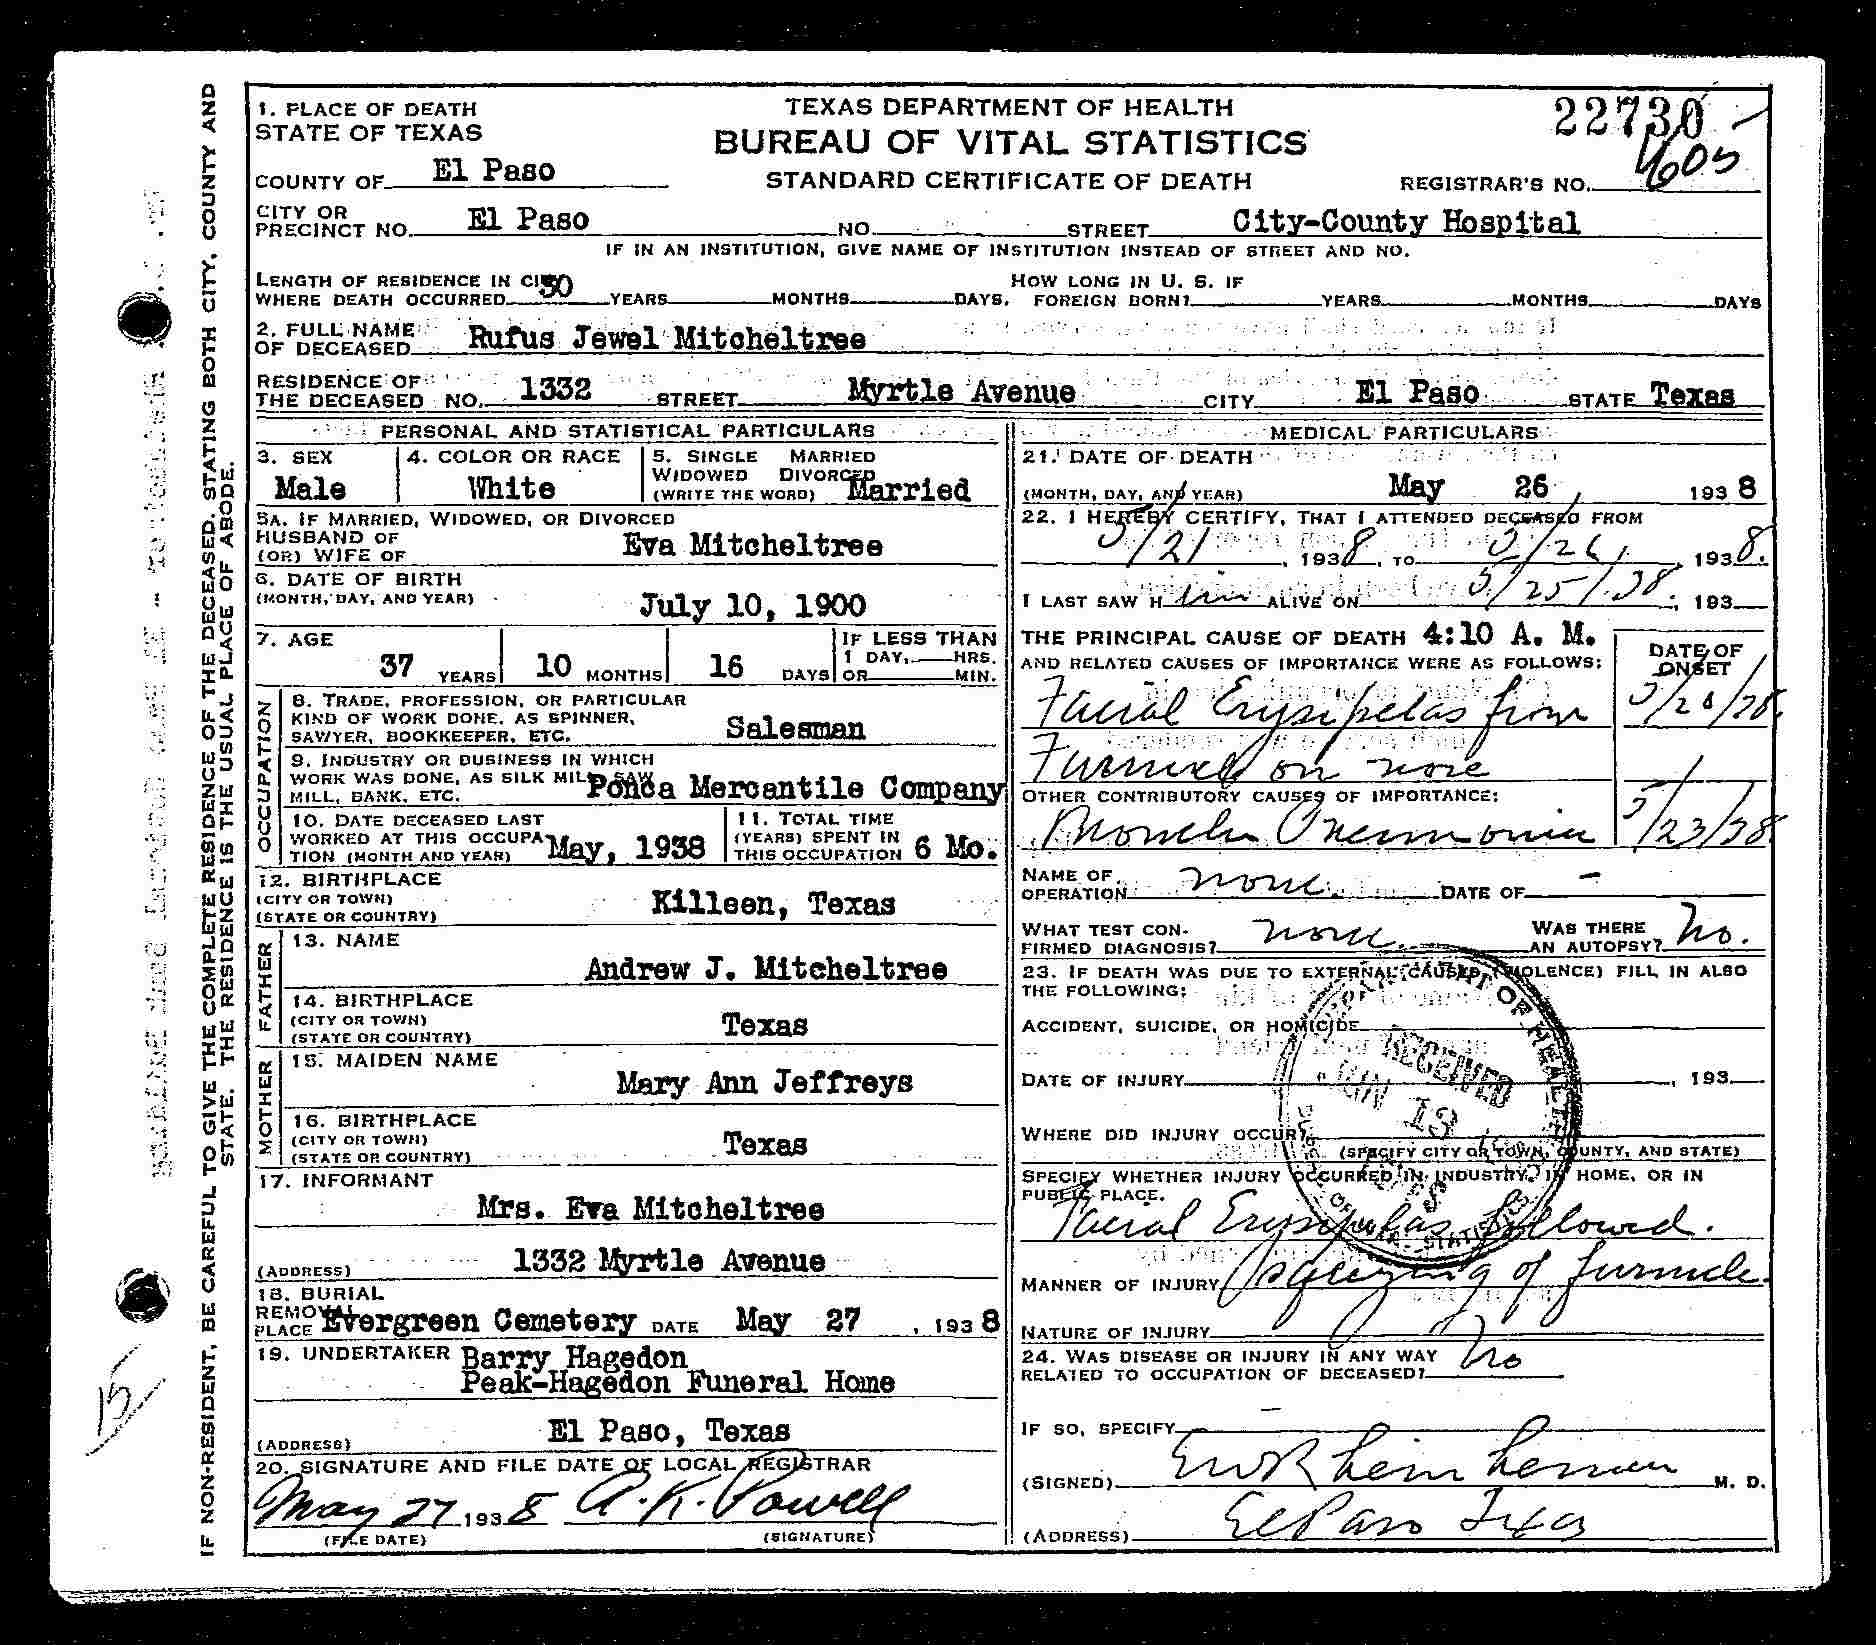 1. PLACE OF DEATH
STATE OF TEXAS
COUNTY OF El Paso
TEXAS DEPARTMENT OF HEALTH
BUREAU OF VITAL STATISTICS
STANDARD CERTIFICATE OF DEATH
22730
REGISTRAR'S NO. 605
CITY OR PRECINCT NO. El Paso NO. STREET City-County Hospital
IF IN AN INSTITUTION, GIVE NAME OF INSTITUTION INSTEAD OF STREET AND NO.
LENGTH OF RESIDENCE IN CITY HOW LONG IN U. S. IF
WHERE DEATH OCCURRED 30 YEARS MONTHS DAYS. FOREIGN BORN? YEARS MONTHS DAYS
2. FULL NAME
OF DECEASED Rufus Jewel Mitcheltree
RESIDENCE OF
THE DECEASED NO. 1332 STREET Myrtle Avenue CITY El Paso STATE Texas
PERSONAL AND STATISTICAL PARTICULARS
3. SEX
Male
4. COLOR OR RACE
White
5. SINGLE MARRIED
WIDOWED DIVORCED
(WRITE THE WORD) Married
5A. IF MARRIED, WIDOWED, OR DIVORCED
HUSBAND OF
(OR) WIFE OF Eva Mitcheltree
6. DATE OF BIRTH
(MONTH, DAY, AND YEAR) July 10, 1900
7. AGE
37 YEARS 10 MONTHS 16 DAYS
IF LESS THAN
1 DAY, HRS.
OR MIN.
OCCUPATION
8. TRADE, PROFESSION, OR PARTICULAR
KIND OF WORK DONE, AS SPINNER,
SAWYER, BOOKKEEPER, ETC. Salesman
9. INDUSTRY OR BUSINESS IN WHICH
WORK WAS DONE, AS SILK MILL, SAW
MILL, BANK, ETC. Ponca Mercantile Company
10. DATE DECEASED LAST
WORKED AT THIS OCCUPA
TION (MONTH AND YEAR) May, 1938
11. TOTAL TIME
(YEARS) SPENT IN
THIS OCCUPATION 6 Mo.
12. BIRTHPLACE
(CITY OR TOWN)
(STATE OR COUNTRY) Killeen, Texas
FATHER
13. NAME
Andrew J. Mitcheltree
14. BIRTHPLACE
(CITY OR TOWN)
(STATE OR COUNTRY) Texas
MOTHER
15. MAIDEN NAME
Mary Ann Jeffreys
16. BIRTHPLACE
(CITY OR TOWN)
(STATE OR COUNTRY) Texas
17. INFORMANT
Mrs. Eva Mitcheltree
(ADDRESS) 1332 Myrtle Avenue
18. BURIAL
REMOVAL
PLACE Evergreen Cemetery DATE May 27, 1938
19. UNDERTAKER Barry Hagedon
Peak-Hagedon Funeral Home
(ADDRESS) El Paso, Texas
20. SIGNATURE AND FILE DATE OF LOCAL REGISTRAR
May 27 1938 A. K. Powell
(FILE DATE) (SIGNATURE)
MEDICAL PARTICULARS
21. DATE OF DEATH
(MONTH, DAY, AND YEAR) May 26, 1938
22. I HEREBY CERTIFY, THAT I ATTENDED DECEASED FROM
5/21, 1938, TO 5/26, 1938.
I LAST SAW H im ALIVE ON 5/25/38, 193
THE PRINCIPAL CAUSE OF DEATH 4:10 A. M.
AND RELATED CAUSES OF IMPORTANCE WERE AS FOLLOWS:
DATE OF
ONSET
Facial Erysipelas from 5/20/38.
Furuncle on nose
OTHER CONTRIBUTORY CAUSES OF IMPORTANCE:
Broncho Pneumonia 5/23/38
NAME OF
OPERATION none. DATE OF -
WHAT TEST CON-
FIRMED DIAGNOSIS? none.
WAS THERE
AN AUTOPSY? No.
23. IF DEATH WAS DUE TO EXTERNAL CAUSES (VIOLENCE) FILL IN ALSO
THE FOLLOWING:
ACCIDENT, SUICIDE, OR HOMICIDE
DATE OF INJURY , 193
WHERE DID INJURY OCCUR?
(SPECIFY CITY OR TOWN, COUNTY, AND STATE)
SPECIFY WHETHER INJURY OCCURRED IN INDUSTRY, IN HOME, OR IN
PUBLIC PLACE.
Facial Erysipelas followed.
MANNER OF INJURY squeezing of furuncle.
NATURE OF INJURY
24. WAS DISEASE OR INJURY IN ANY WAY
RELATED TO OCCUPATION OF DECEASED? No
IF SO, SPECIFY
(SIGNED) M. D.
(ADDRESS) El Paso Texas
RECEIVED
JUN 13
IF NON-RESIDENT, BE CAREFUL TO GIVE THE COMPLETE RESIDENCE OF THE DECEASED, STATING BOTH CITY, COUNTY AND
STATE. THE RESIDENCE IS THE USUAL PLACE OF ABODE.
15/